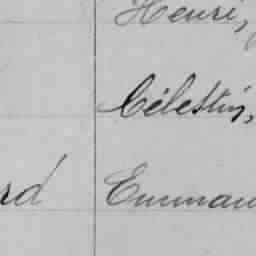 Henri,
Célestin,
rd Emmanu